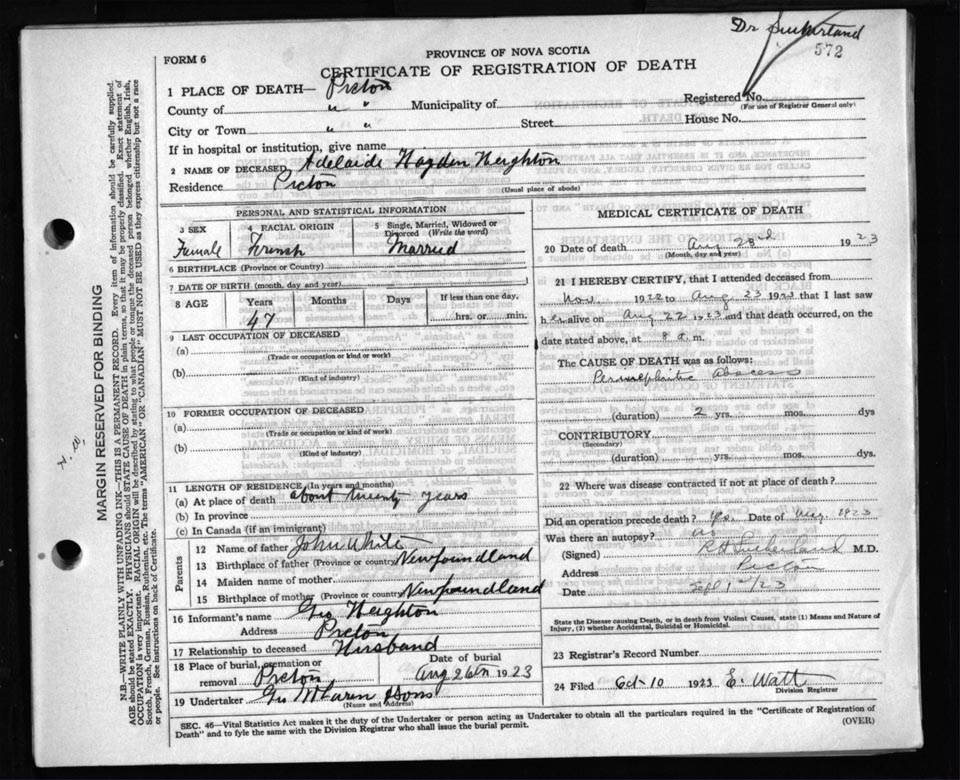 Dr Sutherland
572
FORM 6
PROVINCE OF NOVA SCOTIA
CERTIFICATE OF REGISTRATION OF DEATH
1 PLACE OF DEATH— Pictou
Registered No.
(For use of Registrar General only)
County of " " Municipality of
City or Town " " Street House No.
If in hospital or institution, give name
2 NAME OF DECEASED Adelaide Hagden Heighton
Residence Pictou
(Usual place of abode)
PERSONAL AND STATISTICAL INFORMATION
3 SEX
Female
4 RACIAL ORIGIN
French
5 Single, Married, Widowed or Divorced (Write the word)
Married
6 BIRTHPLACE (Province or Country)
7 DATE OF BIRTH (month, day and year)
8 AGE Years Months Days If less than one day,
47 hrs. or min.
9 LAST OCCUPATION OF DECEASED
(a)
(Trade or occupation or kind or work)
(b)
(Kind of industry)
10 FORMER OCCUPATION OF DECEASED
(a)
(Trade or occupation or kind of work)
(b)
(Kind of industry)
11 LENGTH OF RESIDENCE (In years and months)
(a) At place of death about twenty years
(b) In province
(c) In Canada (if an immigrant)
Parents
12 Name of father John White
13 Birthplace of father (Province or country) Newfoundland
14 Maiden name of mother
15 Birthplace of mother (Province or country) Newfoundland
16 Informant's name Geo Heighton
Address Pictou
17 Relationship to deceased Husband
18 Place of burial, cremation or removal Pictou
Date of burial
Aug 26th 1923
19 Undertaker Geo McLaren & Sons
(Name and Address)
MEDICAL CERTIFICATE OF DEATH
20 Date of death Aug 23rd 1923
(Month, day and year)
21 I HEREBY CERTIFY, that I attended deceased from
Nov. 1922 to Aug 23 1923 that I last saw
her alive on Aug 22 1923 and that death occurred, on the
date stated above, at 8 a. m.
The CAUSE OF DEATH was as follows:
Perinephritic Abscess
(duration) 2 yrs. mos. dys
CONTRIBUTORY
(Secondary)
(duration) yrs. mos. dys.
22 Where was disease contracted if not at place of death?
Did an operation precede death? Yes. Date of Aug. 1923
Was there an autopsy? no
(Signed) R H Sutherland M.D.
Address Pictou
Date Sept 1st/23
State the Disease causing Death, or in death from Violent Causes, state (1) Means and Nature of Injury, (2) whether Accidental, Suicidal or Homicidal.
23 Registrar's Record Number
24 Filed Oct 10 1923 E. Watt
Division Registrar
SEC. 46—Vital Statistics Act makes it the duty of the Undertaker or person acting as Undertaker to obtain all the particulars required in the "Certificate of Registration of
Death" and to fyle the same with the Division Registrar who shall issue the burial permit.
(OVER)
MARGIN RESERVED FOR BINDING
N.B.—WRITE PLAINLY WITH UNFADING INK—THIS IS A PERMANENT RECORD. Every item of information should be carefully supplied.
AGE should be stated EXACTLY. PHYSICIANS should STATE CAUSE OF DEATH in plain terms, so that it may be properly classified. Exact statement of
OCCUPATION is very important. RACIAL ORIGIN will be described by stating to what people or tongue the deceased person belonged whether English, Irish,
Scotch, French, German, Russian, Ruthenian, etc. The terms "AMERICAN" OR "CANADIAN" MUST NOT BE USED as they express citizenship but not a race
or people. See instructions on back of Certificate.